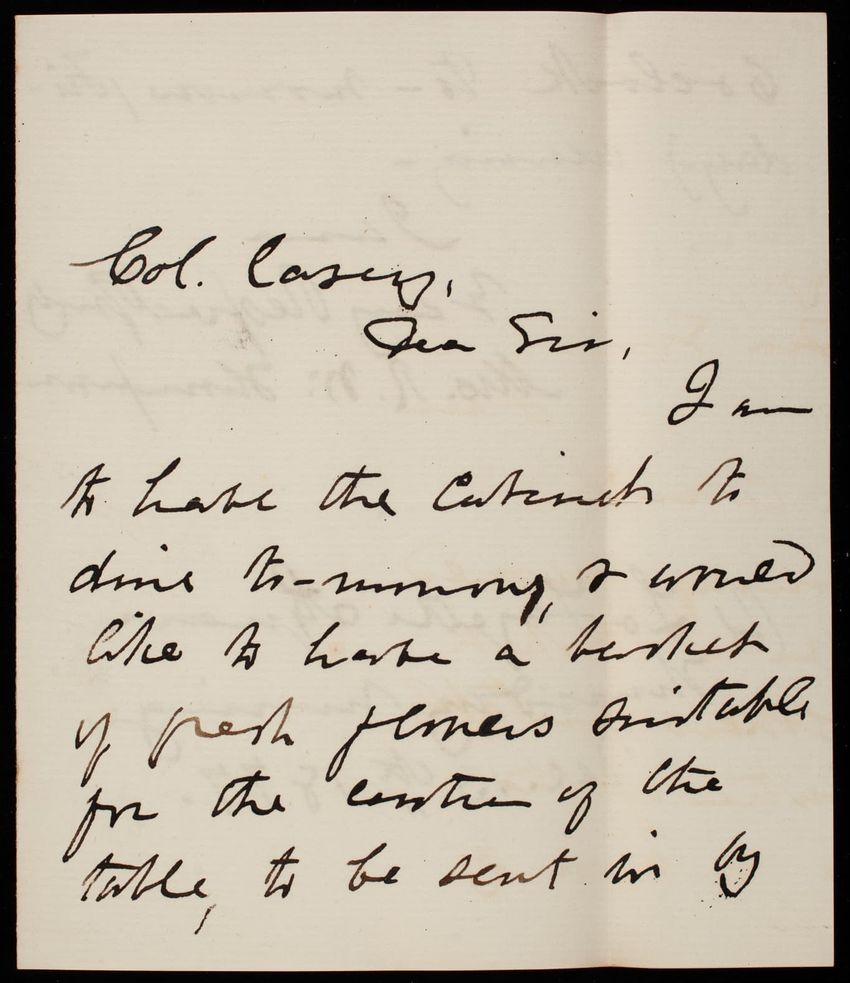 Col. Casey,
Dear Sir,
I am
to have the Cabinet to
dine to-morrow, & would
like to have a basket
of fresh flowers suitable
for the centre of the
table, to be sent in by